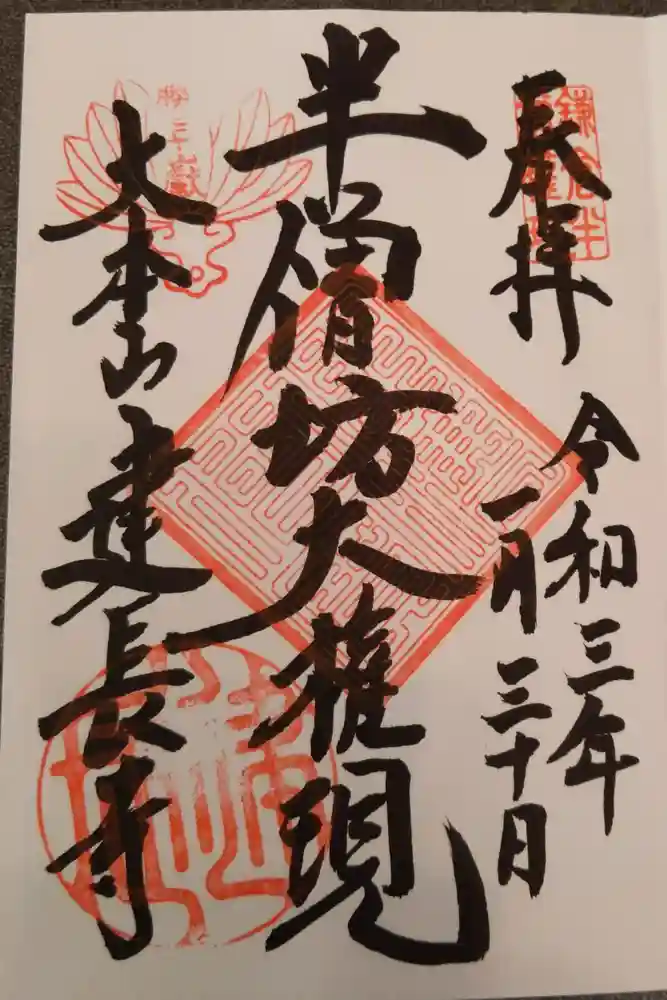 奉拝
令和三年
一月三十日
半僧坊大権現
大本山建長寺